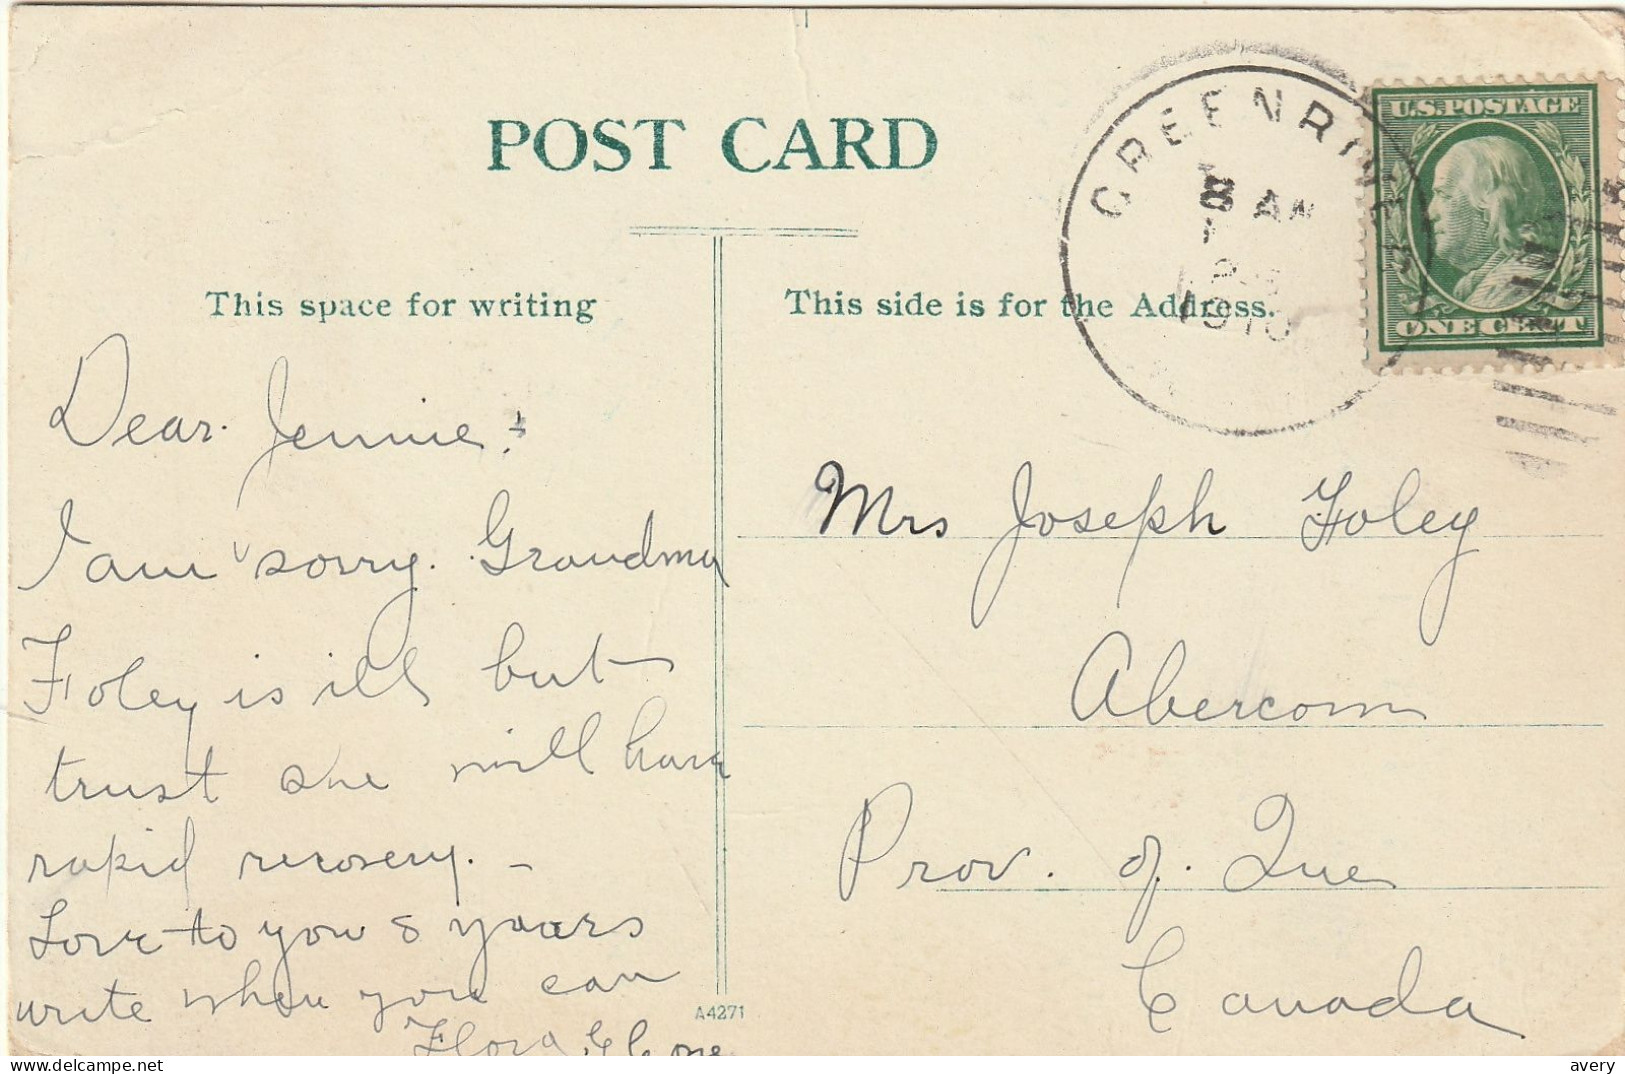 POST CARD
This space for writing
This side is for the Address.
GREENRI
8 AM
1910
U.S. POSTAGE
ONE CENT
Dear Jennie:
I am sorry Grandma
Foley is ill but
trust she will have
rapid recovery. –
Love to you & yours
write when you can
Flora
Mrs Joseph Foley
Abercorn
Prov. of. Que
Canada
A4271
delcampe.net
avery